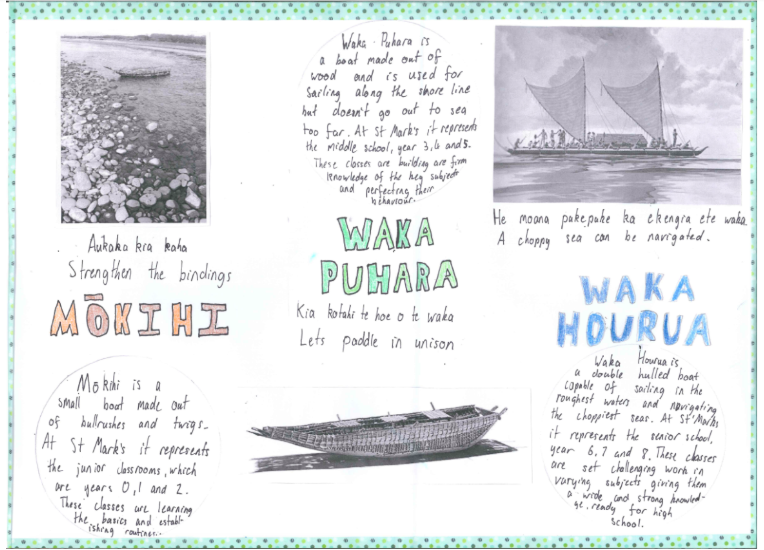 Aukaka kia kaha
Strengthen the bindings
MŌKIHI
Mōkihi is a
small boat made out
of bullrushes and twigs.
At St Mark's it represents
the junior classrooms, which
are years 0,1 and 2.
These classes are learning
the basics and establ-
ishing routines...
Waka Puhara is
a boat made out of
wood and is used for
sailing along the shore line
but doesn't go out to sea
too far. At St Mark's it represents
the middle school, year 3,4 and 5.
These classes are building are firm
knowledge of the key subjects
and perfecting their
behaviour.
WAKA
PUHARA
Kia kotahi te hoe o te waka
Lets paddle in unison
He moana pukepuke ka ekengia ete waka
A choppy sea can be navigated.
WAKA
HOURUA
Waka Hourua is
a double hulled boat
capable of sailing in the
roughest waters and navigating
the choppiest seas. At St Marks
it represents the senior school,
year 6,7 and 8. These classes
are set challenging work in
varying subjects giving them
a wide and strong knowled-
ge. ready for high
school.